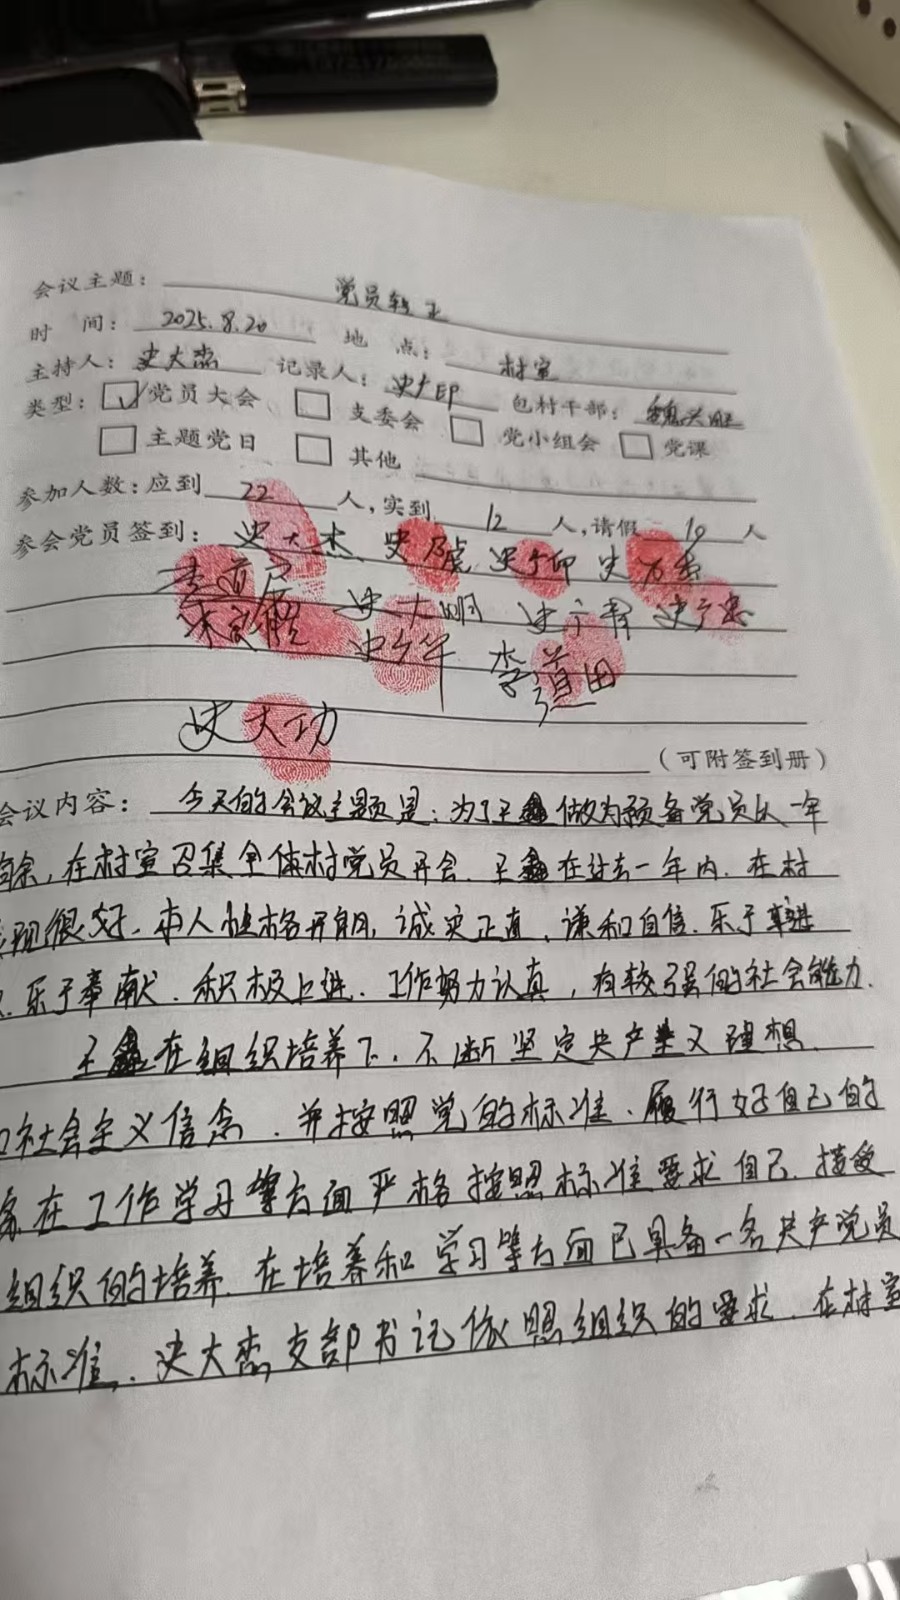 会议主题：党员转正
时 间：2025.8.20 地 点：村室
主持人：史大杰 记录人：史广印 包村干部：魏兴旺
类型：☑党员大会 □支委会 □党小组会 □党课
□主题党日 □其他
参加人数：应到 22 人，实到 12 人，请假 10 人
参会党员签到：史大杰 史乃虎 史广印 史万杰
李道 史大明 史广 史广忠
史广华 李道田
史大功
（可附签到册）
会议内容：今天的会议主题是：为了王鑫做为预备党员以一年
有余，在村室召集全体村党员开会．王鑫在过去一年内．在村
表现很好．本人性格开朗，诚实正直．谦和自信．乐于
．乐于奉献．积极上进．工作努力认真，有较强的社会能力．
王鑫在组织培养下．不断坚定共产主义理想．
和社会主义信念．并按照党的标准．履行好自己的
在工作学习等方面严格按照标准要求自己．接受
组织的培养．在培养和学习等方面已具备一名共产党员
标准．史大杰支部书记依照组织的要求．在村室